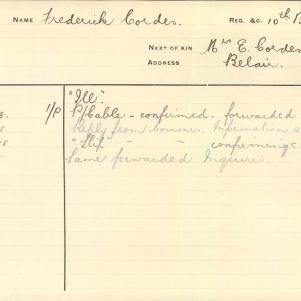 NAME Frederick Cordes. REG. &C. 10th B
NEXT OF KIN Mrs E. Cordes
ADDRESS Belair.
"Ill".
1/P P/Cable - confirmed. forwarded
Reply from
8. "Ill" - - confirming c
Same forwarded Inquirer.